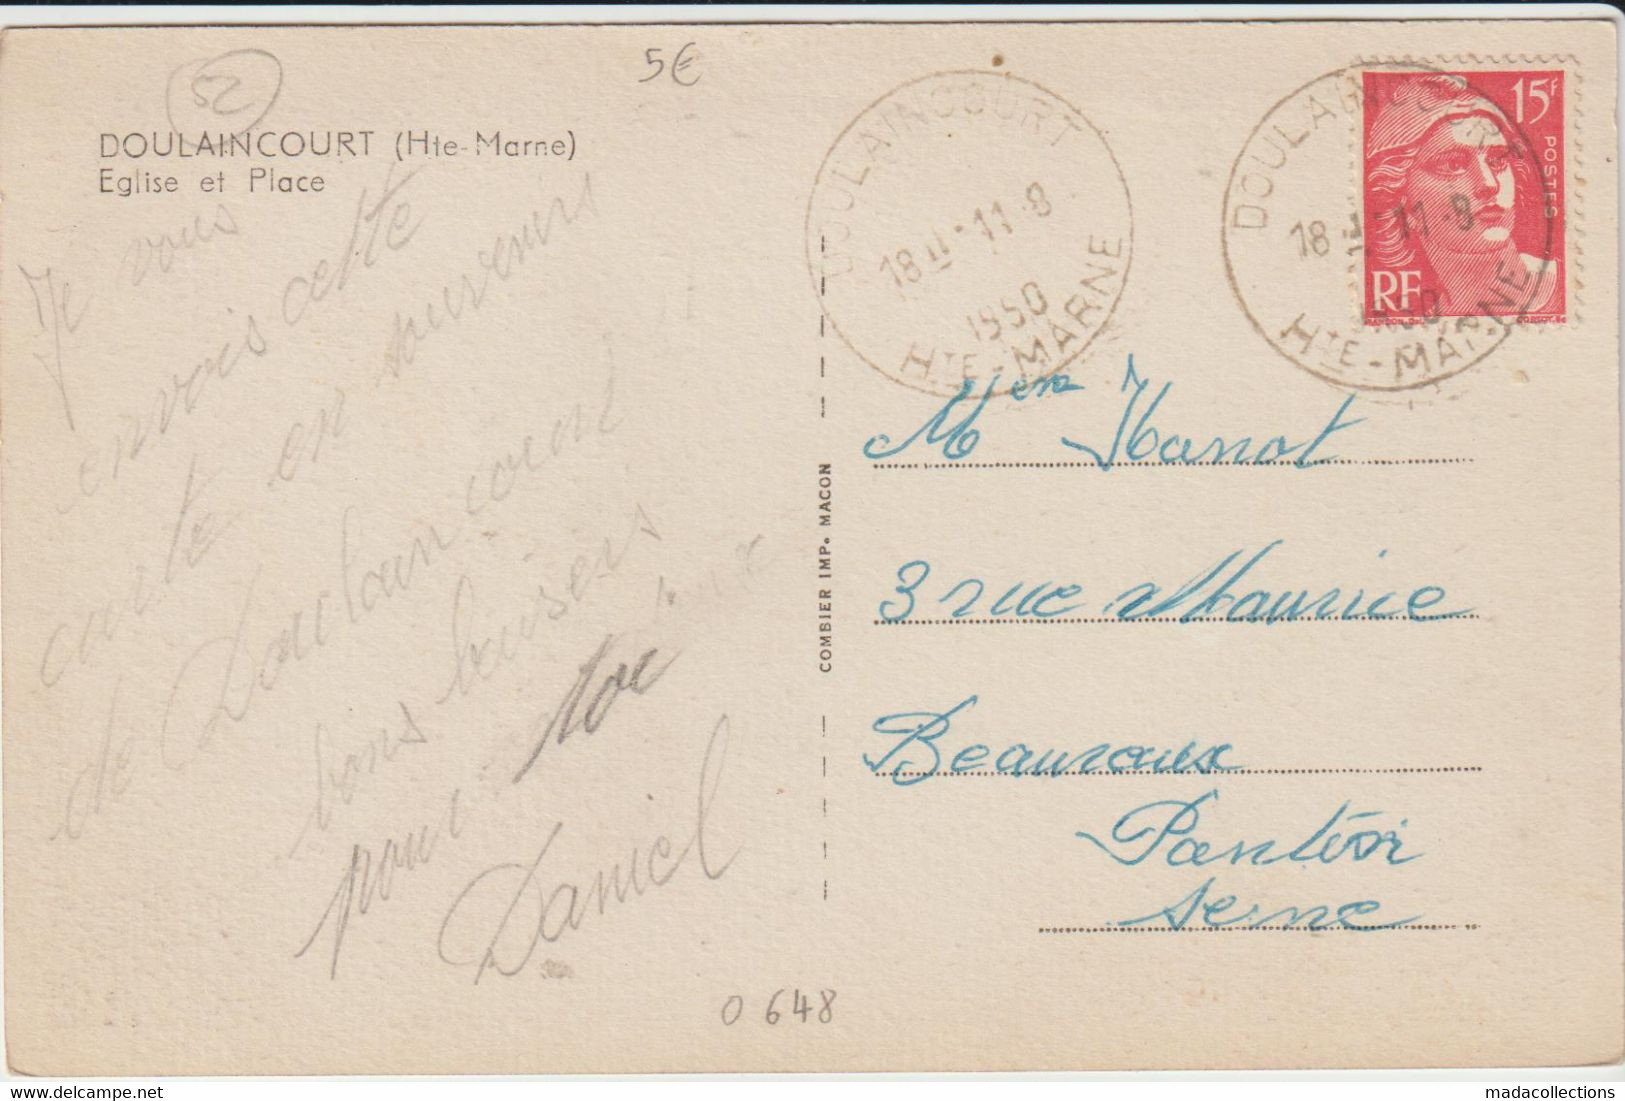 52
5€
DOULAINCOURT (Hte-Marne)
Eglise et Place
Je vous
envois cette
carte en souvenirs
de Doulaincourt
bons baisers
pour toi
Daniel
0 648
COMBIER IMP. MACON
DOULAINCOURT
18 H 11-8
1950
HTE-MARNE
DOULAINCOURT
18 H 11-8
1950
HTE-MARNE
15F
POSTES
RF
Men Hanot
3 rue Maurice
Beaureaux
Pantin
seine
www.delcampe.net
madacollections